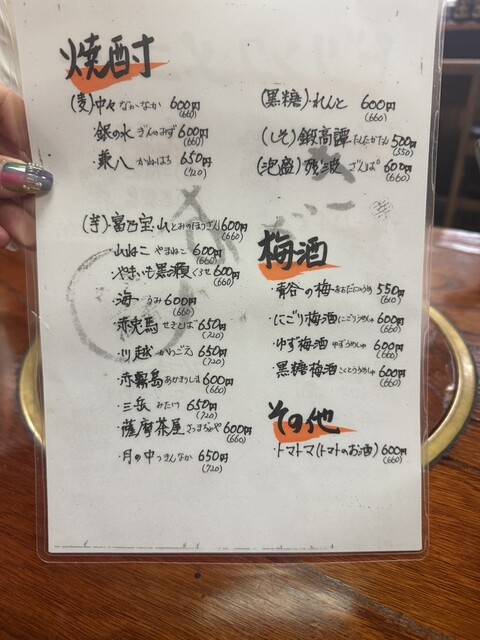 焼酎
(麦)・中々 なかなか 600円
(660)
・銀の水 ぎんのみず 600円
(660)
・兼八 かねはち 650円
(720)
(芋)・富乃宝山 とみのほうざん 600円
(660)
・山ねこ やまねこ 600円
(660)
・やきいも黒瀬 くろせ 600円
(660)
・海 うみ 600円
(660)
・赤兎馬 せきとば 650円
(720)
・川越 かわごえ 650円
(720)
・赤霧島 あかきりしま 600円
(660)
・三岳 みたけ 650円
(720)
・薩摩茶屋 さつまちゃや 600円
(660)
・月の中 つきんなか 650円
(720)
(黒糖)・れんと 600円
(660)
(しそ)・鍛高譚 たんたかたん 500円
(550)
(泡盛)・残波 ざんぱ 600円
(660)
梅酒
・青谷の梅 あおだにのうめ 550円
(610)
・にごり梅酒 にごりうめしゅ 600円
(660)
・ゆず梅酒 ゆずうめしゅ 600円
(660)
・黒糖梅酒 こくとううめしゅ 600円
(660)
その他
・トマトマ(トマトのお酒) 600円
(660)